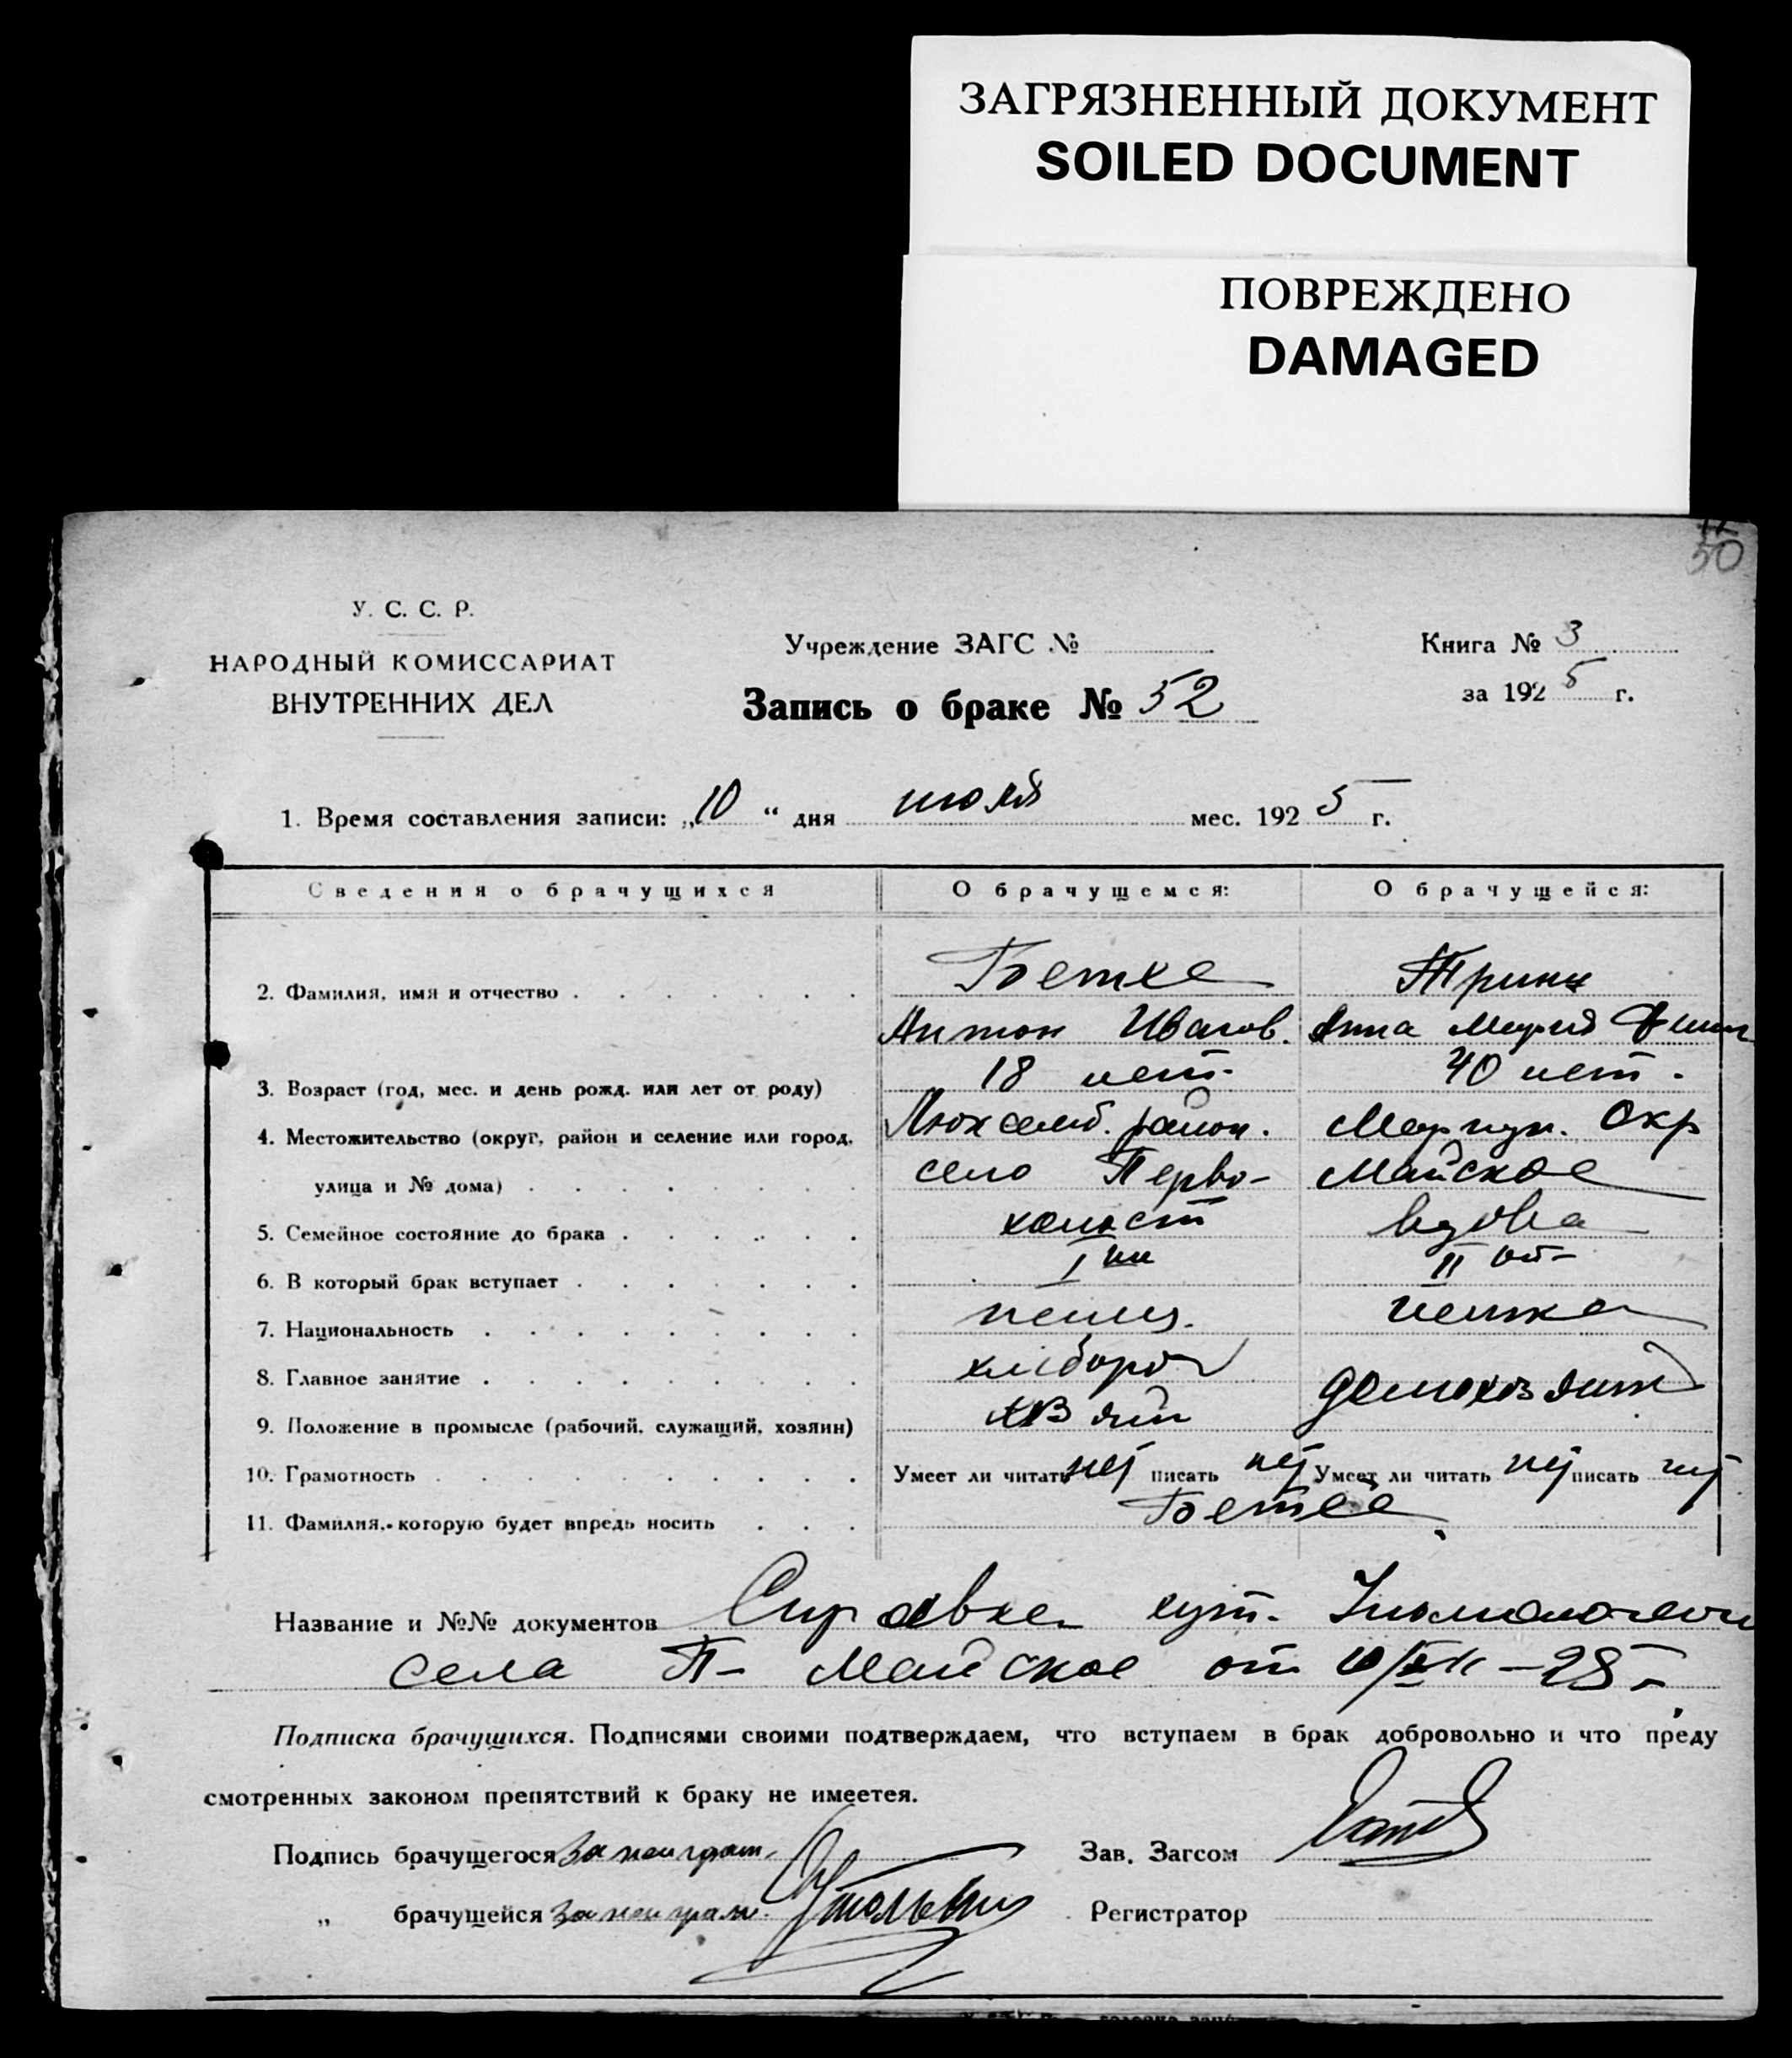 ЗАГРЯЗНЕННЫЙ ДОКУМЕНТ
SOILED DOCUMENT
ПОВРЕЖДЕНО
DAMAGED
50
У. С. С. Р.
НАРОДНЫЙ КОМИССАРИАТ
ВНУТРЕННИХ ДЕЛ
Учреждение ЗАГС №
Запись о браке № 52
Книга № 3
за 1925 г.
1. Время составления записи: „10“ дня июля мес. 1925 г.
Сведения о брачущихся О брачущемся: О брачущейся:
2. Фамилия, имя и отчество Гетке Тринц
Антон Иванов. Анна Мария
3. Возраст (год, мес. и день рожд. или лет от роду) 18 лет. 40 лет.
4. Местожительство (округ, район и селение или город, Люксемб. район. Мариуп. Окр
улица и № дома) село Перво- Майское
5. Семейное состояние до брака холост вдова
6. В который брак вступает I II ой
7. Национальность немец. немка
8. Главное занятие хлебороб домохозяйка
9. Положение в промысле (рабочий, служащий, хозяин)
10. Грамотность Умеет ли читать нет писать нет Умеет ли читать нет писать нет
11. Фамилия, которую будет впредь носить Гетке
Название и №№ документов Справка
села П- Майское от
Подписка брачущихся. Подписями своими подтверждаем, что вступаем в брак добровольно и что преду
смотренных законом препятствий к браку не имеетея.
Подпись брачущегося За неграм. Зав. Загсом
„ брачущейся За неграм. Регистратор